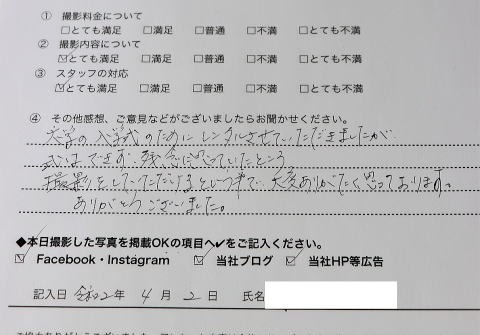 ① 撮影料金について
□とても満足 □満足 □普通 □不満 □とても不満
② 撮影内容について
☑とても満足 □満足 □普通 □不満 □とても不満
③ スタッフの対応
☑とても満足 □満足 □普通 □不満 □とても不満
④ その他感想、ご意見などがございましたらお聞かせください。
大学の入学式のためにレンタルさせていただきましたが、
式はできず、残念に思っていたところ
撮影をしていただけるという事で、大変ありがたく思っております。
ありがとうございました。
◆本日撮影した写真を掲載OKの項目へ✔をご記入ください。
☑ Facebook・Instagram ☑ 当社ブログ ☑ 当社HP等広告
記入日 令和2年 4月 2日 氏名